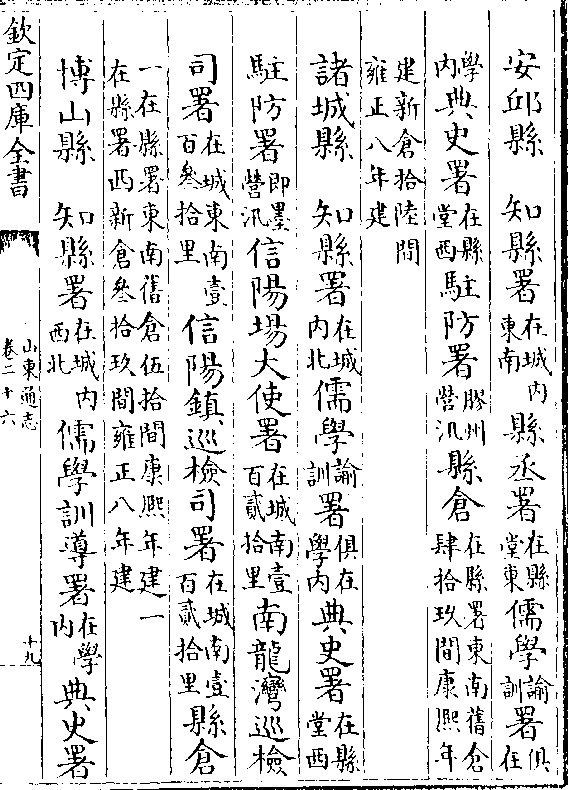 安邱縣　知縣署在城内東南縣丞署在縣堂東儒學諭訓署俱在
學内典史署在縣堂西駐防署膠州營汛縣倉在縣署東南舊倉肆拾玖間康熙年
建新倉拾陸間雍正八年建
諸城縣　知縣署在城内北儒學諭訓署俱在學内典史署在縣堂西
駐防署即墨營汛信陽場大使署在城南壹百貳拾里南龍灣巡檢
司署在城東南壹百叁拾里信陽鎮巡檢司署在城南壹百貳拾里縣倉
一在縣署東南舊倉伍拾間康熙年建一在縣署西新倉叁拾玖間雍正八年建
博山縣　知縣署在城内西北儒學訓導署在學内典史署
欽定四庫全書
山東通志
卷二十六
十九